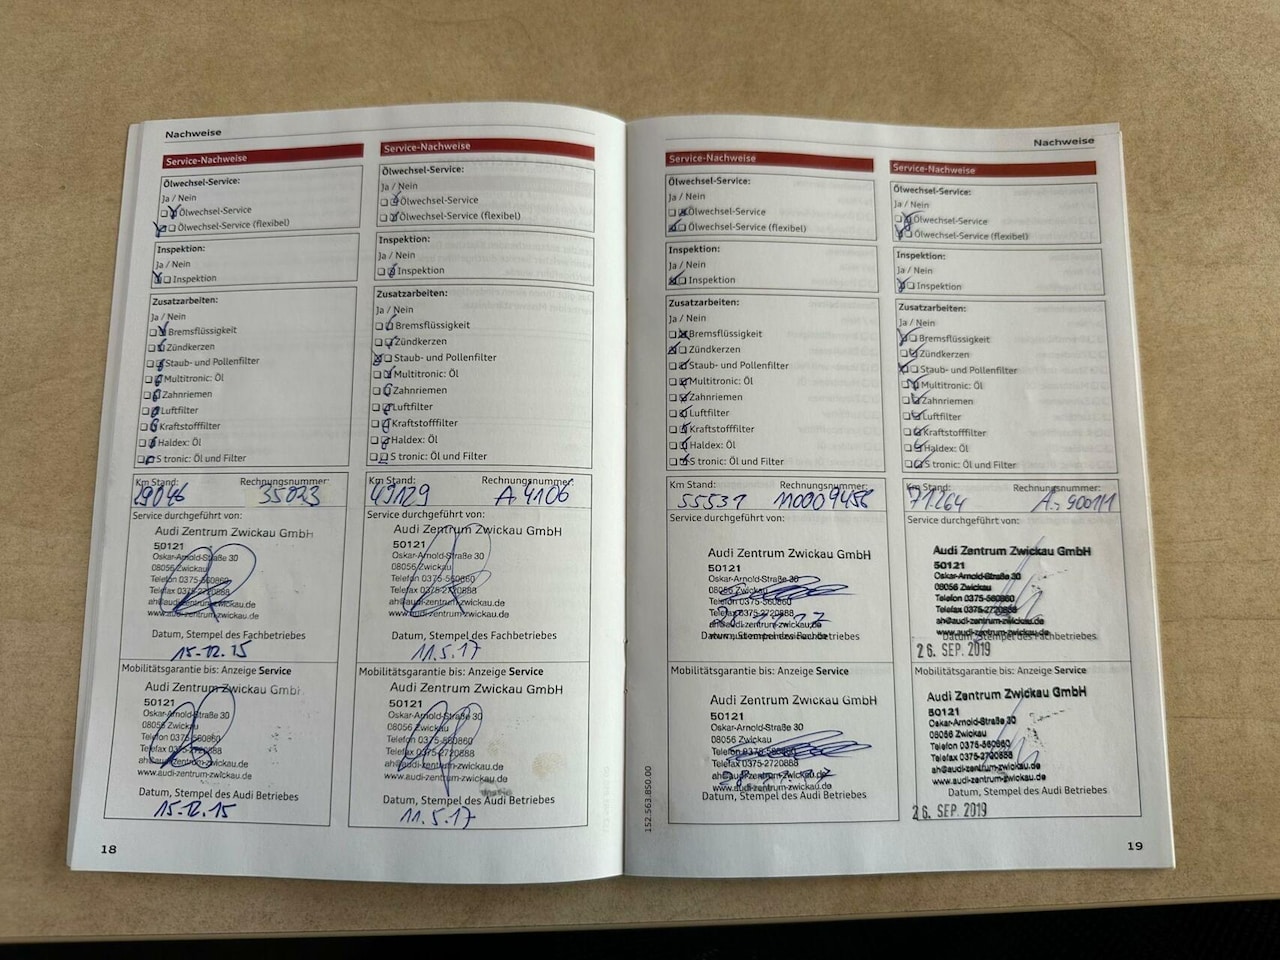 Nachweise
Service-Nachweise
Ölwechsel-Service:
Ja / Nein
Ölwechsel-Service
Ölwechsel-Service (flexibel)
Inspektion:
Ja / Nein
Inspektion
Zusatzarbeiten:
Ja / Nein
Bremsflüssigkeit
Zündkerzen
Staub- und Pollenfilter
Multitronic: Öl
Zahnriemen
Luftfilter
Kraftstofffilter
Haldex: Öl
S tronic: Öl und Filter
Km Stand: Rechnungsnummer:
29046 35023
Service durchgeführt von:
Audi Zentrum Zwickau GmbH
50121
Oskar-Arnold-Straße 30
08056 Zwickau
Telefon 0375-560860
Telefax 0375-2720888
ah@audi-zentrum-zwickau.de
www.audi-zentrum-zwickau.de
Datum, Stempel des Fachbetriebes
15.12.15
Mobilitätsgarantie bis: Anzeige Service
Audi Zentrum Zwickau GmbH
50121
Oskar-Arnold-Straße 30
08056 Zwickau
Telefon 0375-560860
Telefax 0375-2720888
ah@audi-zentrum-zwickau.de
www.audi-zentrum-zwickau.de
Datum, Stempel des Audi Betriebes
15.12.15
18
Service-Nachweise
Ölwechsel-Service:
Ja / Nein
Ölwechsel-Service
Ölwechsel-Service (flexibel)
Inspektion:
Ja / Nein
Inspektion
Zusatzarbeiten:
Ja / Nein
Bremsflüssigkeit
Zündkerzen
Staub- und Pollenfilter
Multitronic: Öl
Zahnriemen
Luftfilter
Kraftstofffilter
Haldex: Öl
S tronic: Öl und Filter
Km Stand: Rechnungsnummer:
49129 A 4106
Service durchgeführt von:
Audi Zentrum Zwickau GmbH
50121
Oskar-Arnold-Straße 30
08056 Zwickau
Telefon 0375-560860
Telefax 0375-2720888
ah@audi-zentrum-zwickau.de
www.audi-zentrum-zwickau.de
Datum, Stempel des Fachbetriebes
11.5.17
Mobilitätsgarantie bis: Anzeige Service
Audi Zentrum Zwickau GmbH
50121
Oskar-Arnold-Straße 30
08056 Zwickau
Telefon 0375-560860
Telefax 0375-2720888
ah@audi-zentrum-zwickau.de
www.audi-zentrum-zwickau.de
Datum, Stempel des Audi Betriebes
11.5.17
Nachweise
Service-Nachweise
Ölwechsel-Service:
Ja / Nein
Ölwechsel-Service
Ölwechsel-Service (flexibel)
Inspektion:
Ja / Nein
Inspektion
Zusatzarbeiten:
Ja / Nein
Bremsflüssigkeit
Zündkerzen
Staub- und Pollenfilter
Multitronic: Öl
Zahnriemen
Luftfilter
Kraftstofffilter
Haldex: Öl
S tronic: Öl und Filter
Km Stand: Rechnungsnummer:
55531 110009456
Service durchgeführt von:
Audi Zentrum Zwickau GmbH
50121
Oskar-Arnold-Straße 30
08056 Zwickau
Telefon 0375-560860
Telefax 0375-2720888
ah@audi-zentrum-zwickau.de
Datum, Stempel des Fachbetriebes
Mobilitätsgarantie bis: Anzeige Service
Audi Zentrum Zwickau GmbH
50121
Oskar-Arnold-Straße 30
08056 Zwickau
Telefon 0375-560860
Telefax 0375-2720888
ah@audi-zentrum-zwickau.de
www.audi-zentrum-zwickau.de
Datum, Stempel des Audi Betriebes
152.563.850.00
Service-Nachweise
Ölwechsel-Service:
Ja / Nein
Ölwechsel-Service
Ölwechsel-Service (flexibel)
Inspektion:
Ja / Nein
Inspektion
Zusatzarbeiten:
Ja / Nein
Bremsflüssigkeit
Zündkerzen
Staub- und Pollenfilter
Multitronic: Öl
Zahnriemen
Luftfilter
Kraftstofffilter
Haldex: Öl
S tronic: Öl und Filter
Km Stand: Rechnungsnummer:
71264
Service durchgeführt von:
Audi Zentrum Zwickau GmbH
50121
Oskar-Arnold-Straße 30
08056 Zwickau
Telefon 0375-560860
Telefax 0375-2720888
ah@audi-zentrum-zwickau.de
www.audi-zentrum-zwickau.de
Datum, Stempel des Fachbetriebes
26. SEP. 2019
Mobilitätsgarantie bis: Anzeige Service
Audi Zentrum Zwickau GmbH
50121
Oskar-Arnold-Straße 30
08056 Zwickau
Telefon 0375-560860
Telefax 0375-2720888
ah@audi-zentrum-zwickau.de
www.audi-zentrum-zwickau.de
Datum, Stempel des Audi Betriebes
26. SEP. 2019
19